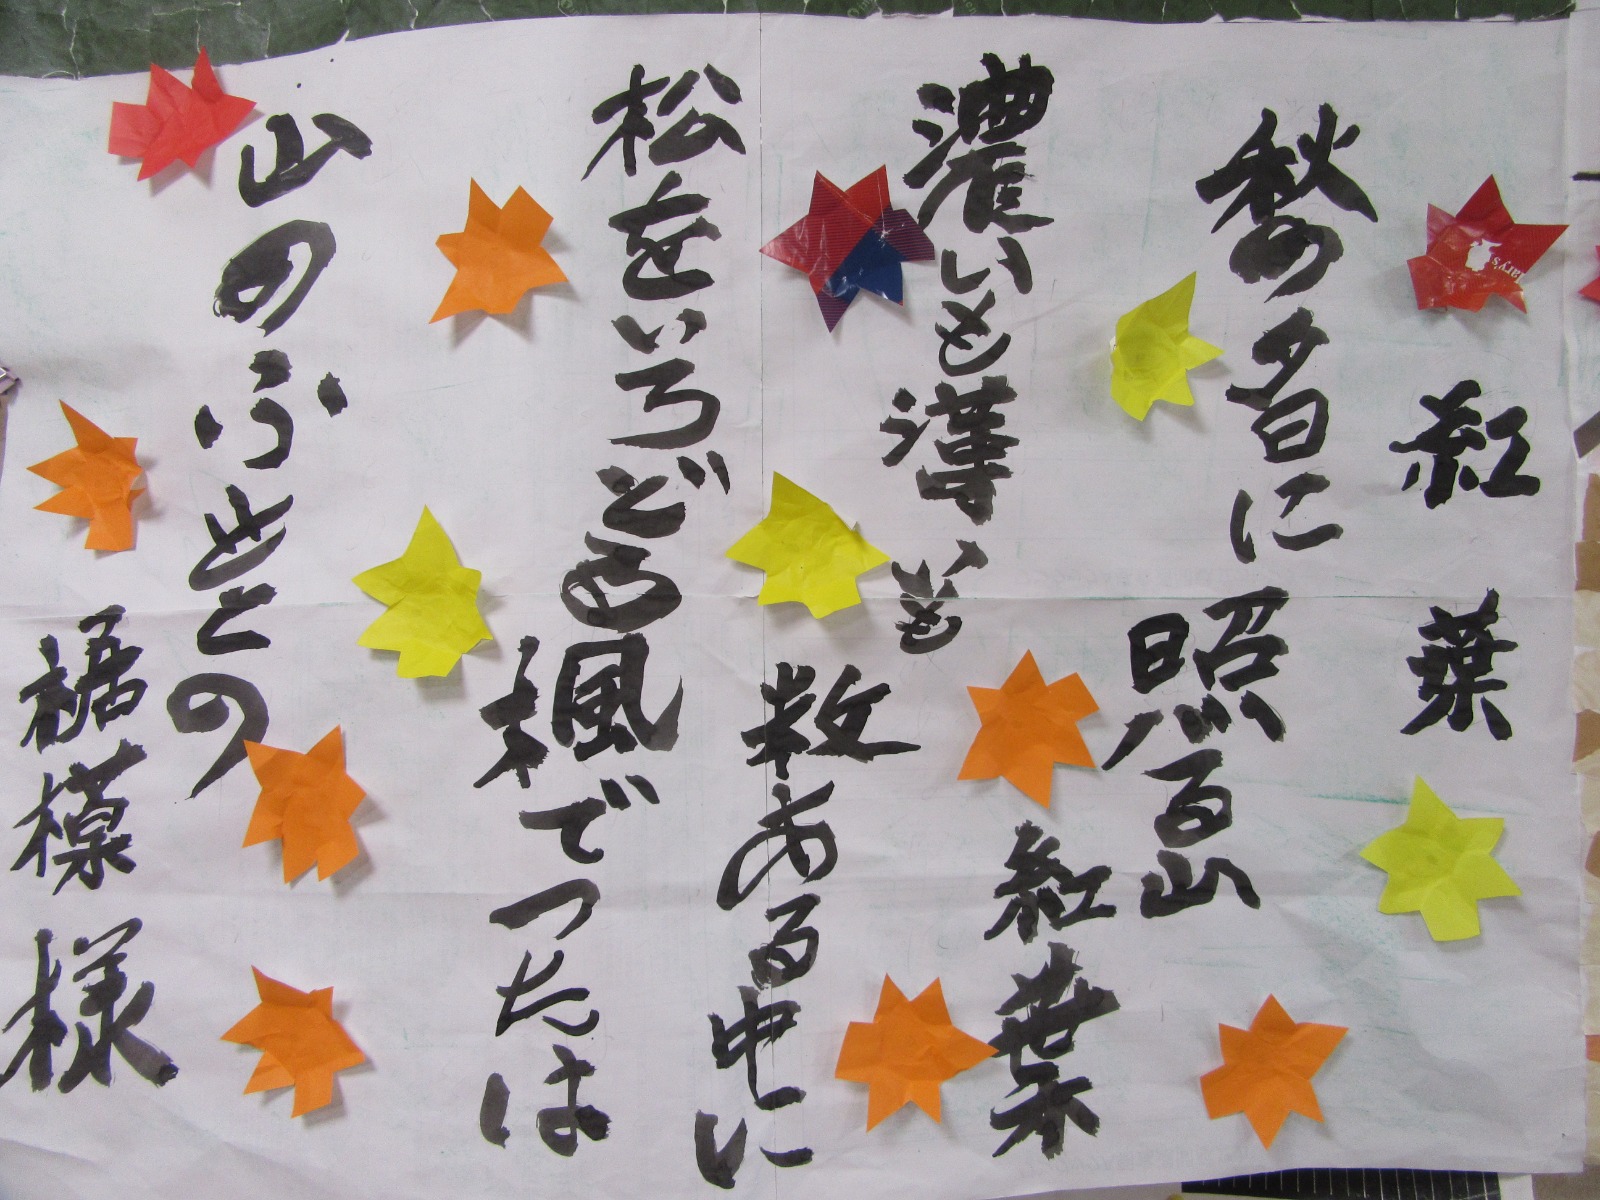 紅葉
秋の夕日に照る山紅葉
濃いも薄いも数ある中に
松をいろどる楓でつたは
山のふもとの
裾模様
ary's